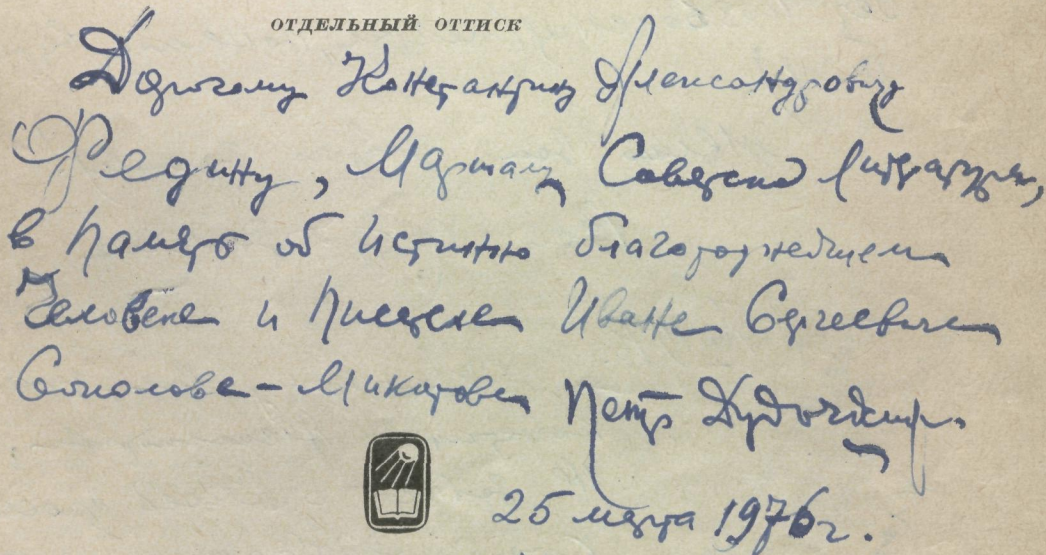 ОТДЕЛЬНЫЙ ОТТИСК
Дорогому Константину Александровичу
Федину, Маршалу Советской Литературы,
в память об истинно благороднейшем
Человеке и Писателе Иване Сергеевиче
Соколове-Микитове Петр Дудочкин.
25 марта 1976 г.